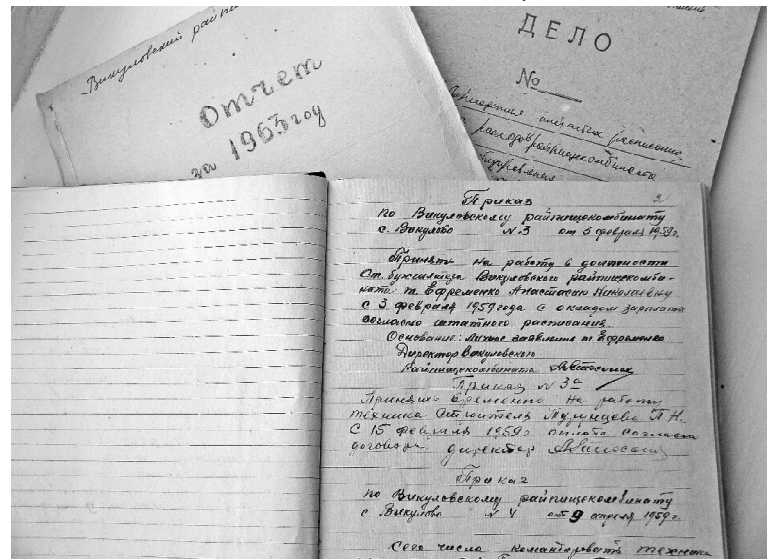 Викуловский райпи
Отчет
за 1963 год
ДЕЛО
№
расходов райпищекомбината
2
Приказ
по Викуловскому райпищекомбинату
с. Викулово № 3 от 5 февраля 1959 г.
Принять на работу в должности
Ст. бухгалтера Викуловского райпищекомби-
ната т. Ефременко Анастасию Николаевну
с 3 февраля 1959 года с окладом зарплаты
согласно штатного расписания.
Основание: Личное заявление т Ефременко
Директор Викуловского
Райпищекомбината
Приказ № 3а
Принять временно на работу
техника Строителя П. Н.
С 15 февраля 1959 г оплата согласно
договора директор
Приказ
по Викуловскому райпищекомбинату
с Викулово № 4 от 9 апреля 1959 г.
Сего числа командировать техника